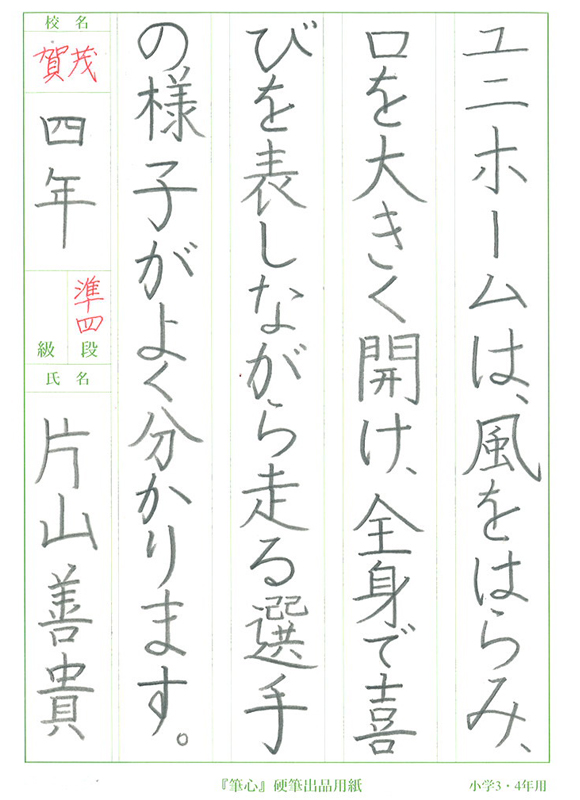 ユニホームは、風をはらみ、
口を大きく開け、全身で喜
びを表しながら走る選手
の様子がよく分かります。
校名
賀茂
四年
準四
級段
氏名
片山善貴
『筆心』硬筆出品用紙
小学3・4年用